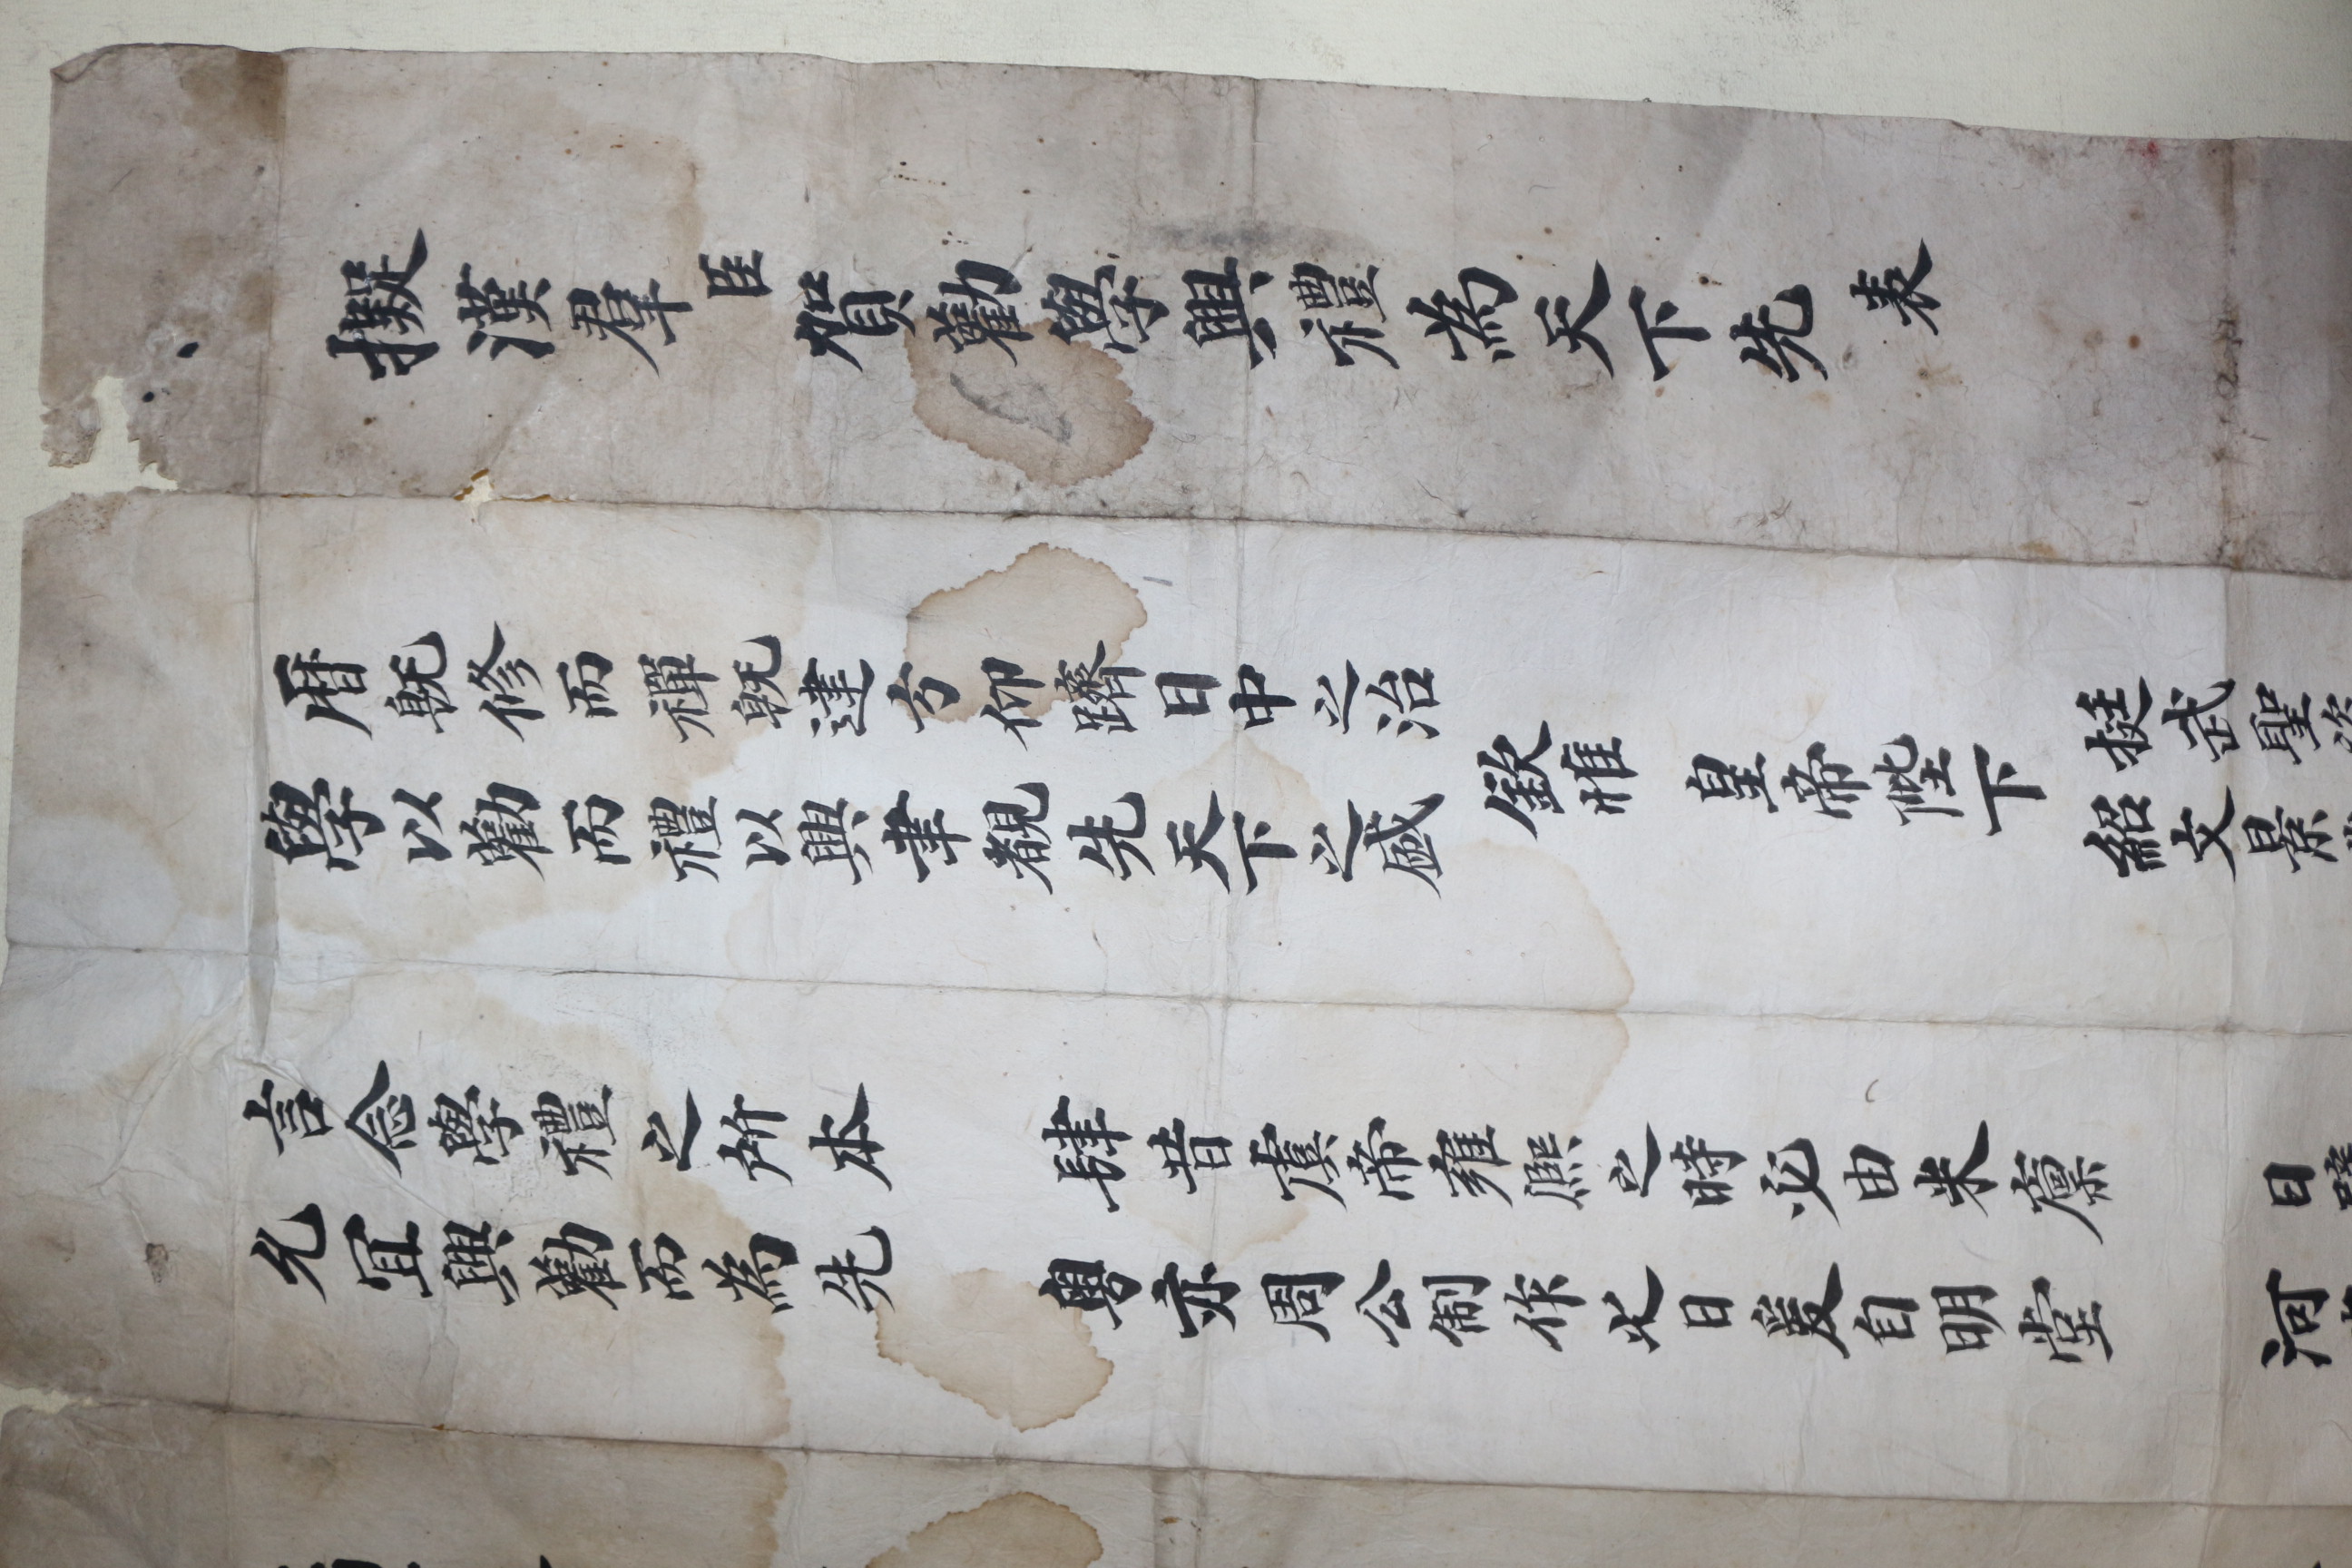 擬漢羣臣賀勸學興禮為天下先表
曆既修而禪既建方仰躋日中之治
學以勸而禮以興聿覩先天下之盛
欽惟 皇帝陛下
挺武聖
紹文景
言念學禮之所本 肆昔虞帝雍熙之時必由米廩
允宜興勸而為先 粤亦周公制作之日爰自明堂
日
河